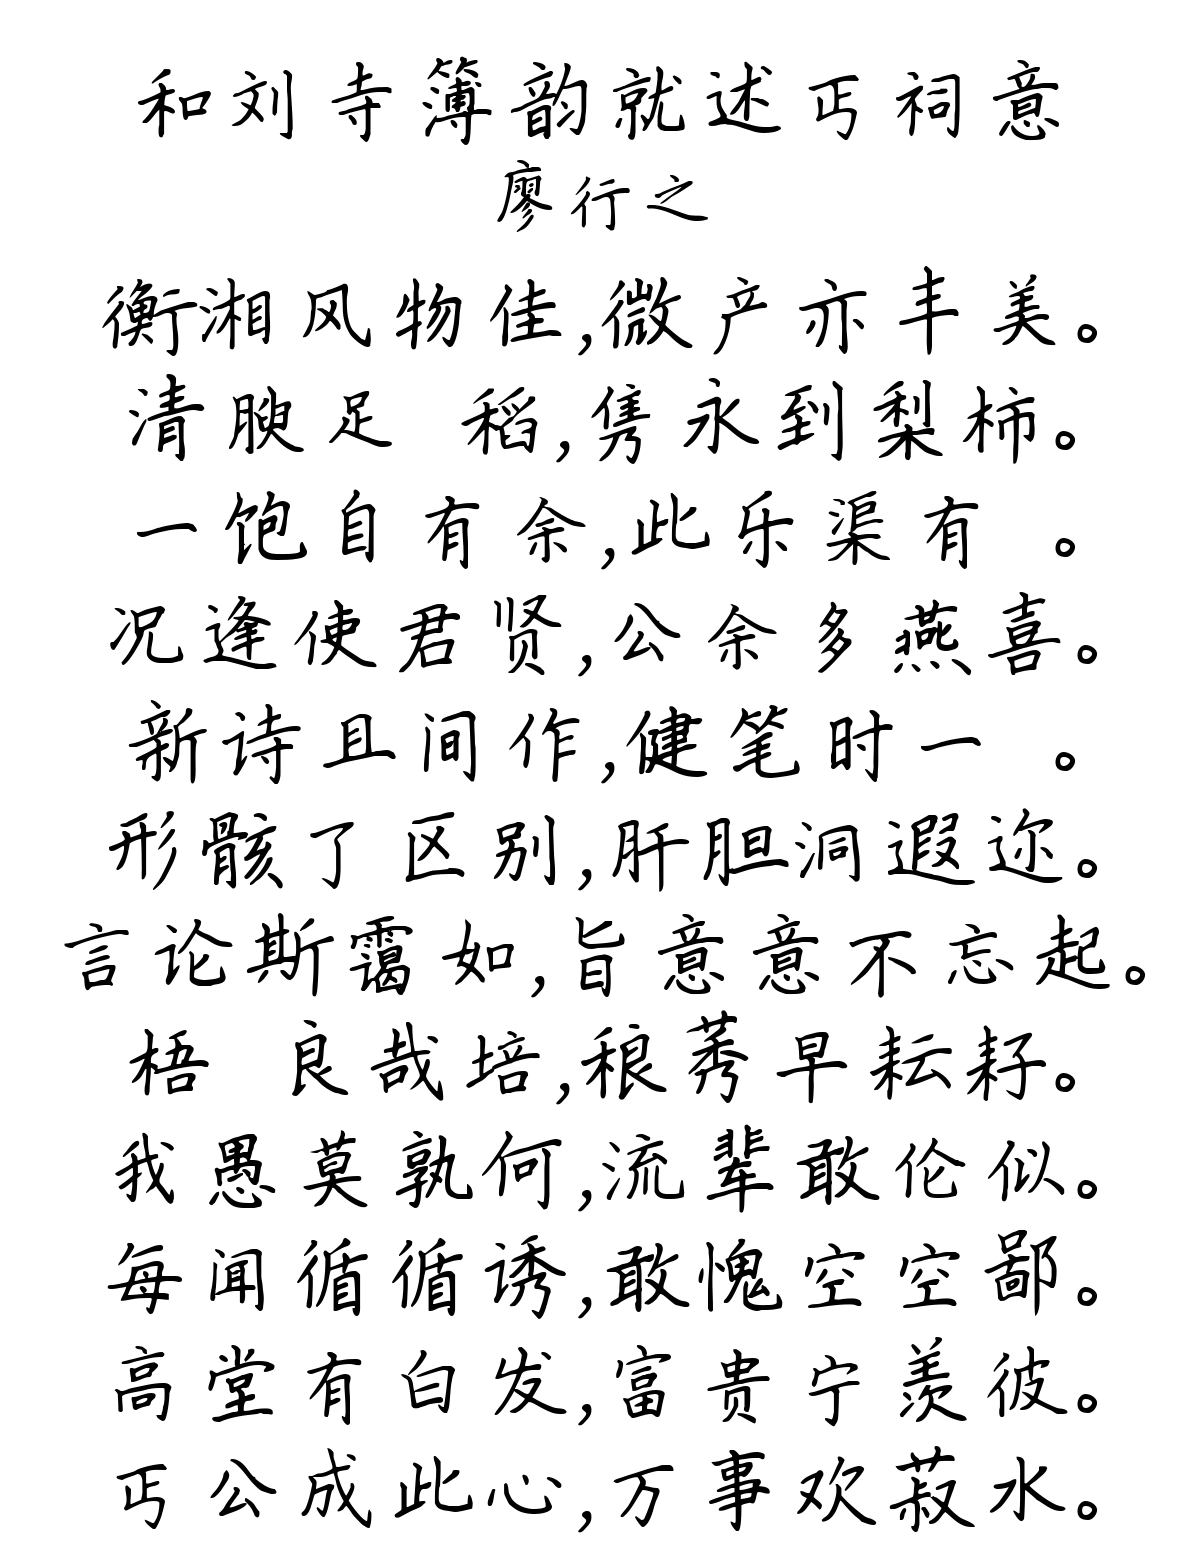 和刘寺簿韵就述丐祠意
廖行之
衡湘风物佳,微产亦丰美。
清腴足 稻,隽永到梨柿。
一饱自有余,此乐渠有 。
况逢使君贤,公余多燕喜。
新诗且间作,健笔时一 。
形骸了区别,肝胆洞遐迩。
言论斯霭如,旨意意不忘起。
梧 良哉培,稂莠早耘耔。
我愚莫孰何,流辈敢伦似。
每闻循循诱,敢愧空空鄙。
高堂有白发,富贵宁羡彼。
丐公成此心,万事欢菽水。